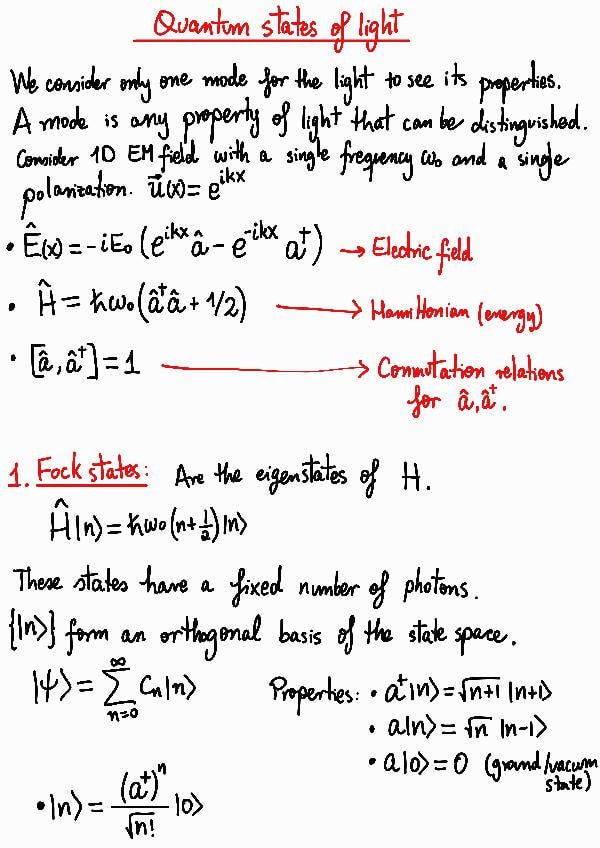 Quantum states of light
We consider only one mode for the light to see its properties.
A mode is any property of light that can be distinguished.
Consider 1D EM field with a single frequency ω₀ and a single
polarization. u⃗(x) = e^{ikx}
• Ê(x) = -iE₀ (e^{ikx} â - e^{-ikx} a†) → Electric field
• Ĥ = ħω₀ (â†â + 1/2) → Hamiltonian (energy)
• [â, â†] = 1 → Commutation relations
for â, â†.
1. Fock states: Are the eigenstates of H.
Ĥ|n⟩ = ħω₀ (n + 1/2) |n⟩
These states have a fixed number of photons.
{|n⟩} form an orthogonal basis of the state space.
|ψ⟩ = ∑_{n=0}^{∞} Cₙ|n⟩ Properties: • a†|n⟩ = √(n+1) |n+1⟩
• a|n⟩ = √n |n-1⟩
• a|0⟩ = 0 (grand/vacum
state)
• |n⟩ = (a†)ⁿ / √n! |0⟩